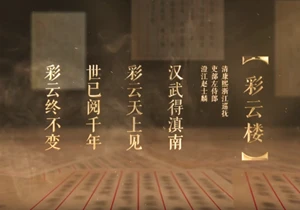 【彩云楼】
清康熙浙江巡抚
吏部左侍郎
澄江赵士麟
汉武得滇南
彩云天上见
世已阅千年
彩云终不变